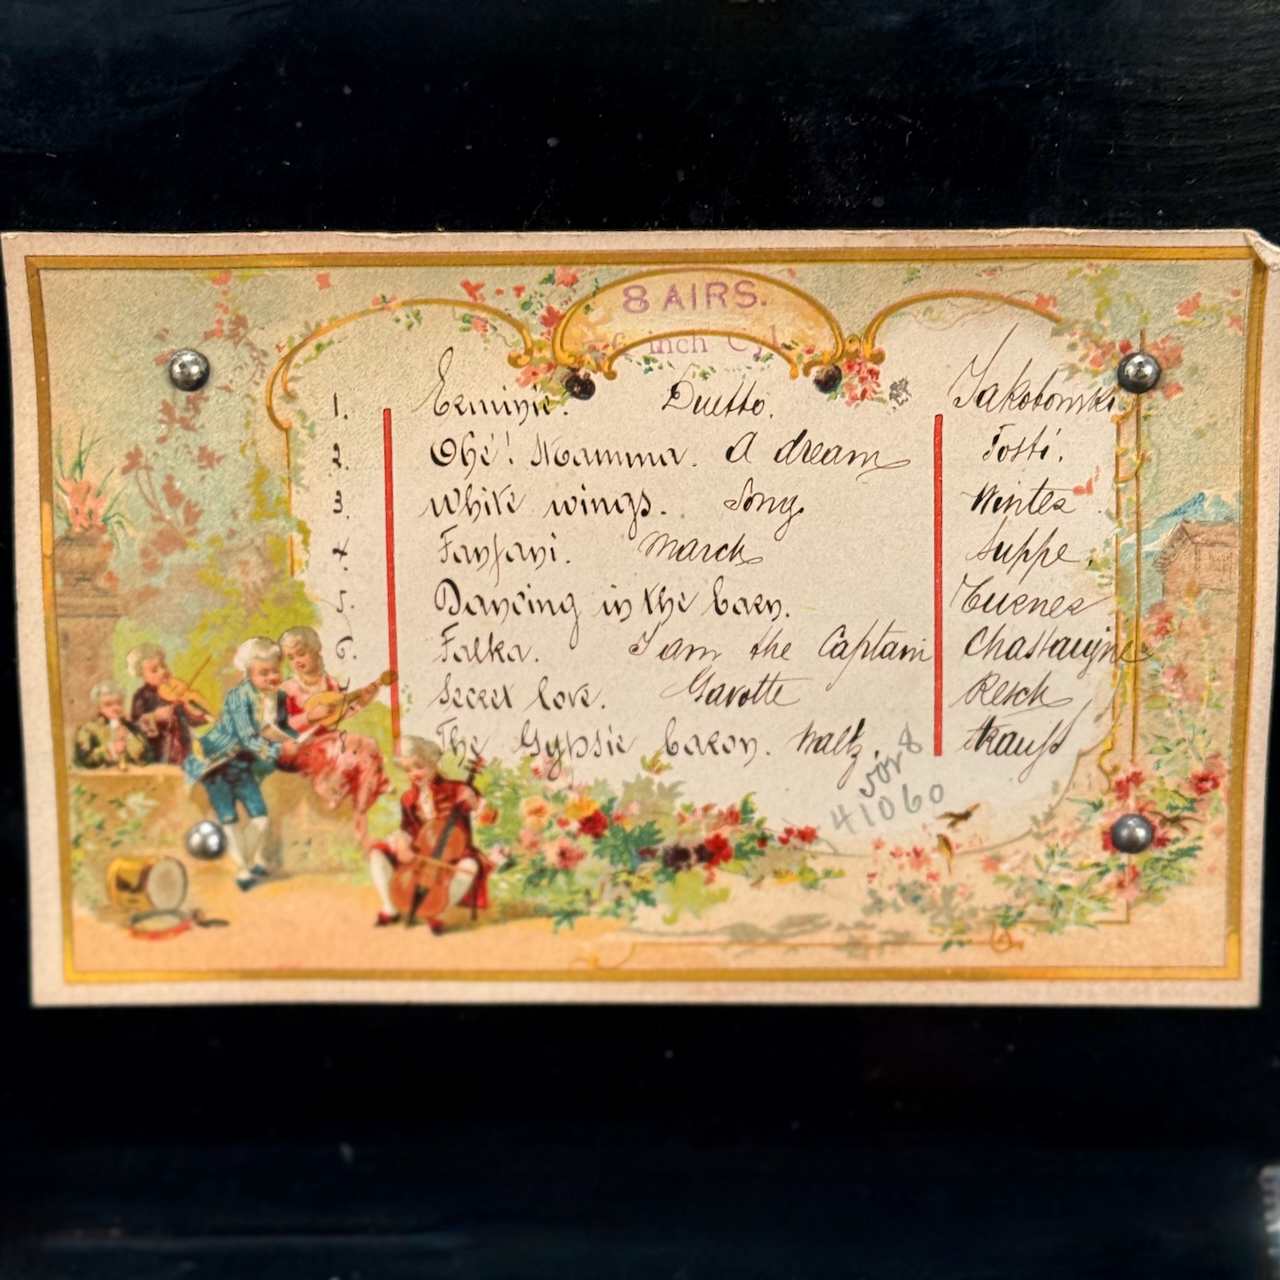 8 AIRS.
6 inch Cyl
1. Erminie. Duetto. Jakobowski
2. Ohé! Mamma. A dream Tosti.
3. White wings. Song Winter
4. Fanfani. March Suppe.
5. Dancing in the barn. Turner
6. Falka. I am the Captain Chassaigne
Secret love. Gavotte Resch
8 The Gypsie baron. Waltz. Strauss
vor 8
41060